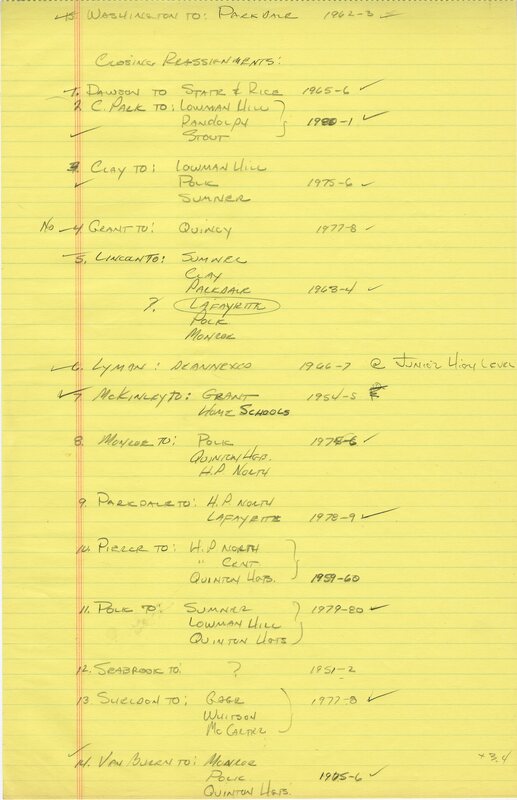 15. WASHINGTON TO: PARKDALE 1962-3 ✓
CLOSING REASSIGNMENTS:
1. DAWSON TO STATE & RICE 1965-6 ✓
2. C. PARK TO: LOWMAN HILL
RANDOLPH 1980-1 ✓
✓ STOUT
3. CLAY TO: LOWMAN HILL
✓ POLK 1975-6 ✓
SUMNER
NO ✓ 4 GRANT TO: QUINCY 1977-8 ✓
5. LINCOLN TO: SUMNER
CLAY
PARKDALE 1963-4 ✓
?. LAFAYETTE
POLK
MONROE
✓ 6. LYMAN: DEANNEXED 1966-7 @ JUNIOR HIGH LEVEL
✓ 7 MCKINLEY TO: GRANT 1954-5
HOME SCHOOLS
8. MONROE TO: POLK 1975-6 ✓
QUINTON HGTS.
H.P. NORTH
9. PARKDALE TO: H.P. NORTH
LAFAYETTE 1978-9 ✓
10. PIERCE TO: H.P. NORTH
" CENT
QUINTON HGTS. 1959-60
11. POLK TO: SUMNER 1979-80 ✓
LOWMAN HILL
QUINTON HGTS
12. SEABROOK TO: ? 1951-2
13. SHELDON TO: GAGE 1977-8 ✓
WHITSON
MCCARTER
✓ 14. VAN BUREN TO: MONROE +3,4
POLK 1965-6 ✓
QUINTON HGTS.